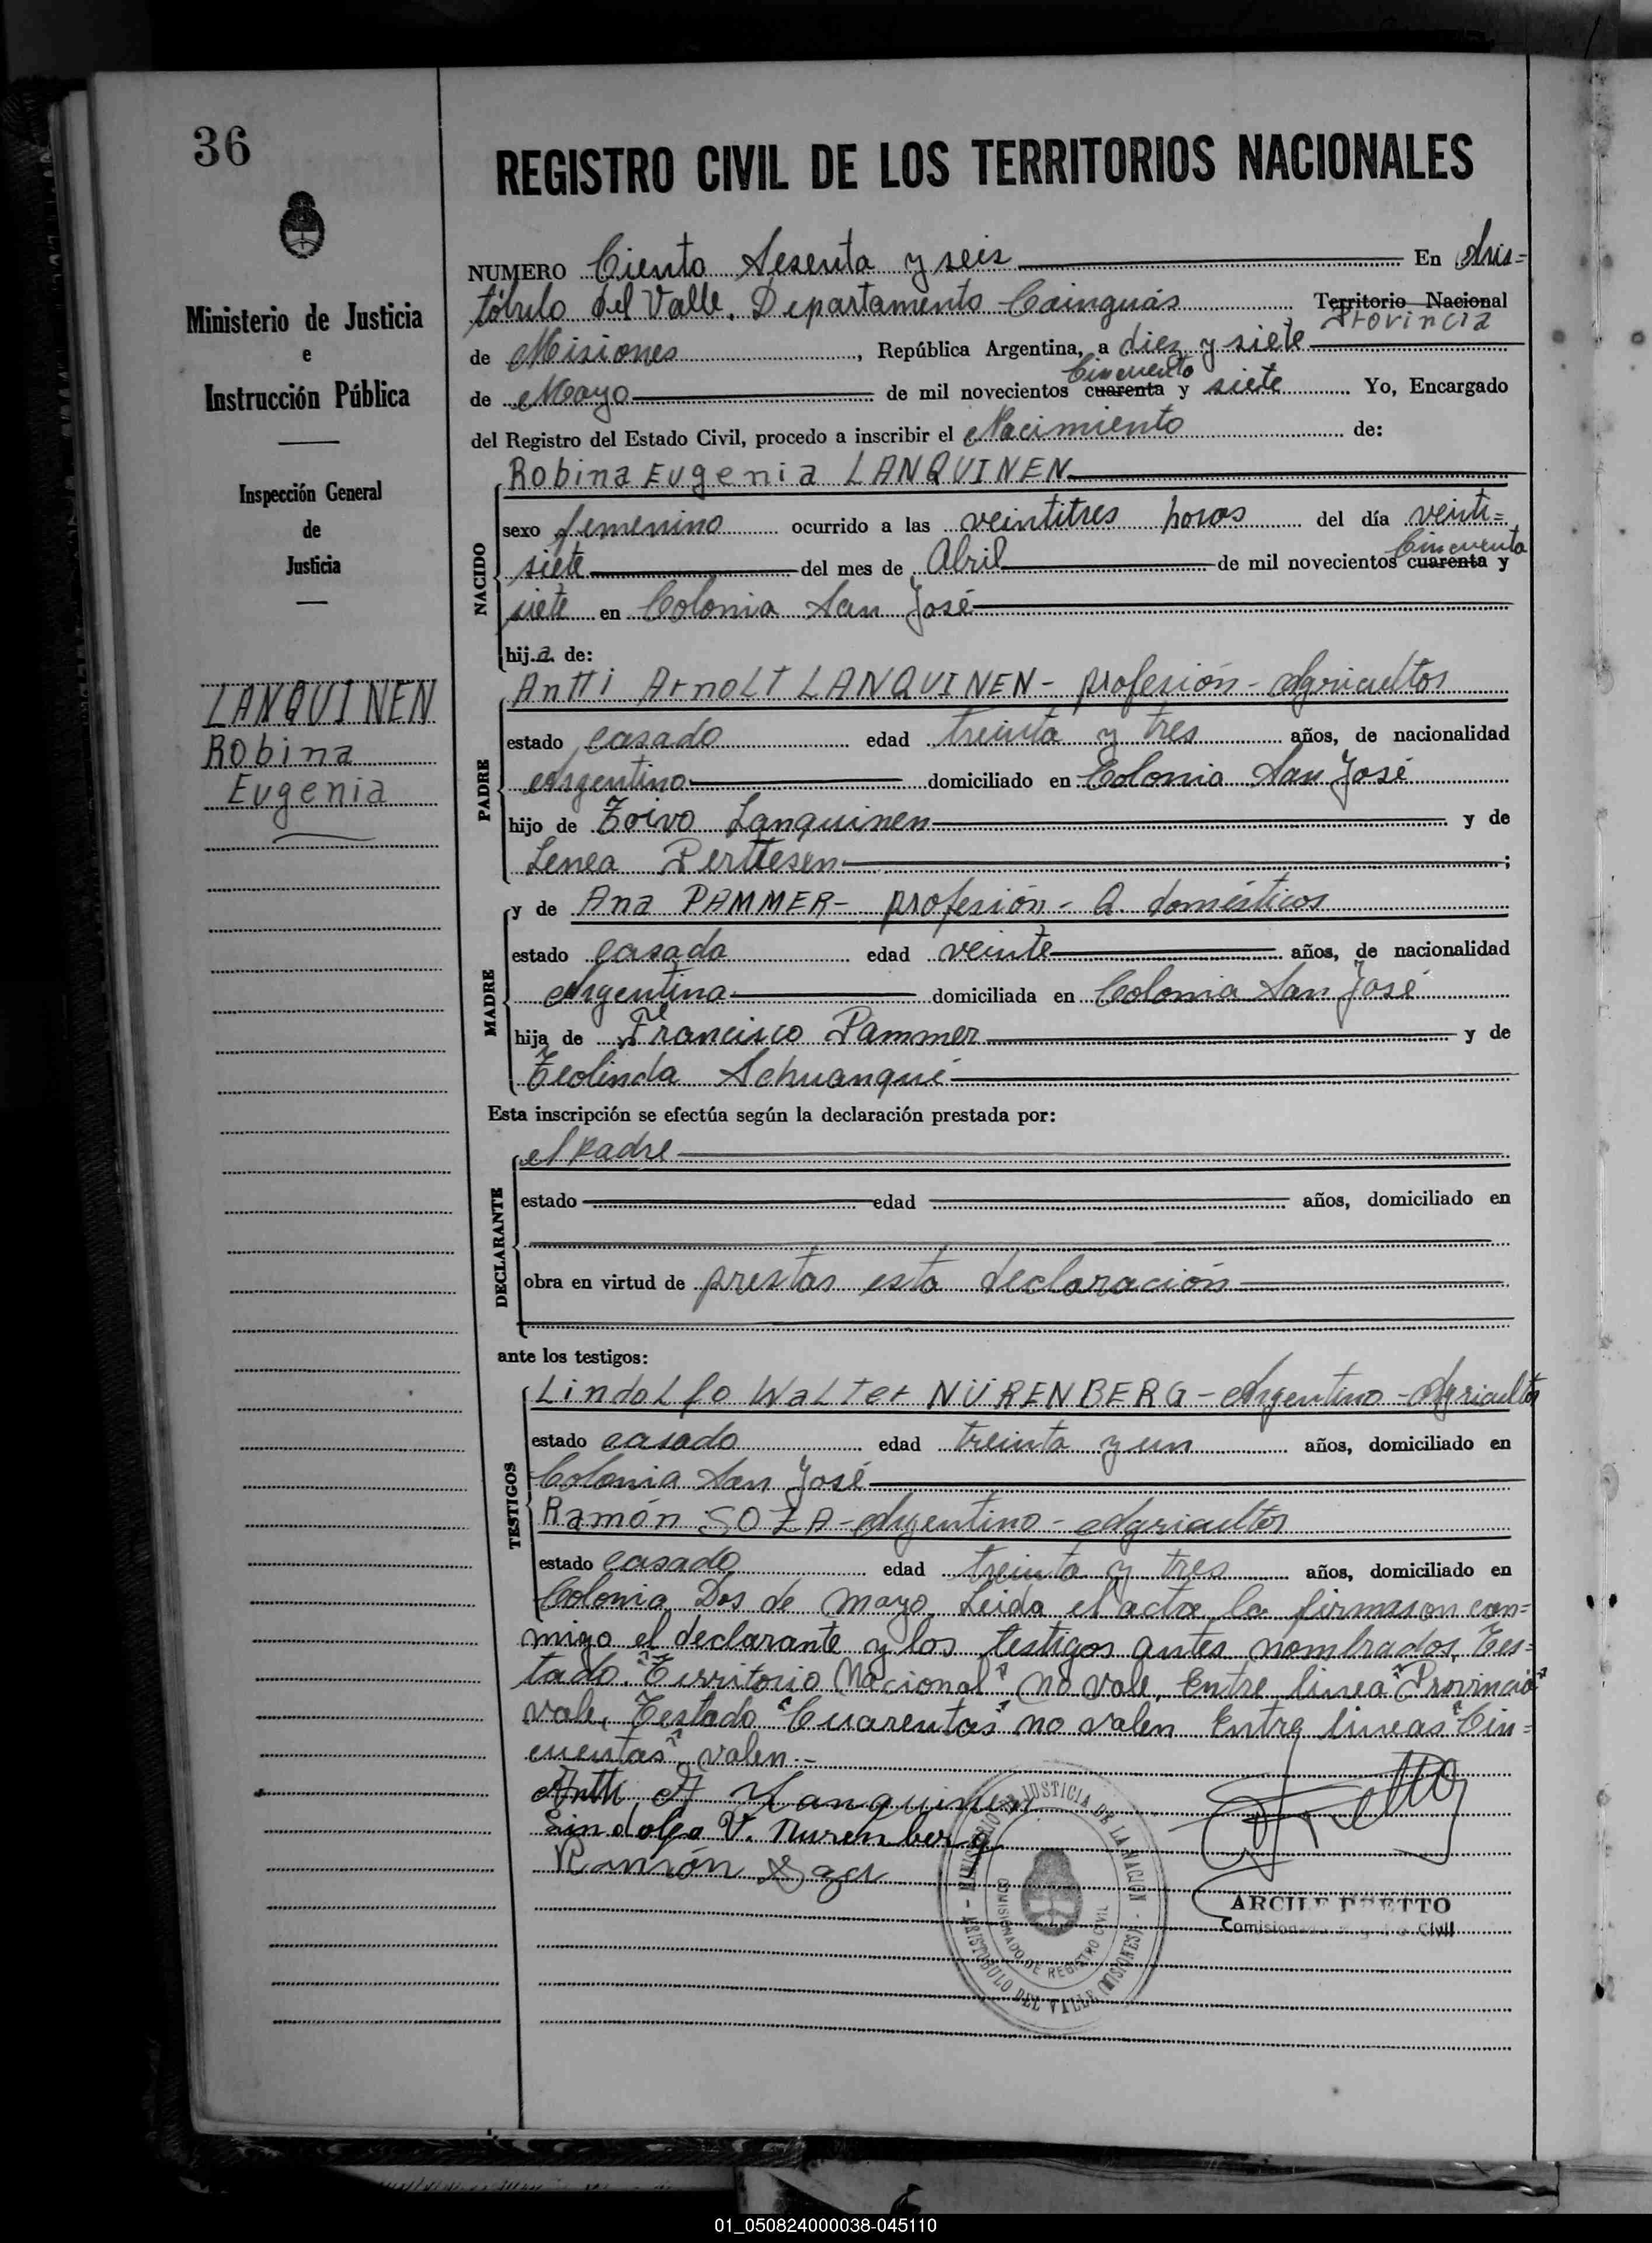 36
Ministerio de Justicia
e
Instrucción Pública
Inspección General
de
Justicia
LANQUINEN
Robina
Eugenia
REGISTRO CIVIL DE LOS TERRITORIOS NACIONALES
NUMERO Ciento Sesenta y seis En Aris=
tóbulo del Valle, Departamento Cainguás Territorio Nacional
Provincia
de Misiones, República Argentina, a diez y siete
Cincuenta
de Mayo de mil novecientos cuarenta y siete Yo, Encargado
del Registro del Estado Civil, procedo a inscribir el Nacimiento de:
Robina Eugenia LANQUINEN
NACIDO
sexo femenino ocurrido a las veintitres horas del día veinti=
Cincuenta
siete del mes de Abril de mil novecientos cuarenta y
siete en Colonia San José
hij.a de:
Antti Arnolt LANQUINEN - profesión - Agricultor
PADRE
estado casado edad treinta y tres años, de nacionalidad
Argentino domiciliado en Colonia San José
hijo de Toivo Lanquinen y de
Lenea Perttesen ;
y de Ana PAMMER - profesión - Q. domésticos
MADRE
estado casada edad veinte años, de nacionalidad
Argentina domiciliada en Colonia San José
hija de Francisco Pammer y de
Teolinda Schuanque
Esta inscripción se efectúa según la declaración prestada por:
el padre
DECLARANTE
estado edad años, domiciliado en
obra en virtud de prestar esta declaración
ante los testigos:
Lindolfo Walter NÜRENBERG - Argentino - Agricultor
TESTIGOS
estado casado edad treinta y un años, domiciliado en
Colonia San José
Ramón SOZA - Argentino - Agricultor
estado casado edad treinta y tres años, domiciliado en
Colonia Dos de mayo. Leida el acta la firmaron con=
migo el declarante y los testigos antes nombrados. Tes=
tado. "Territorio Nacional" no vale. Entre linea "Provincia"
vale, Testado "Cuarentas" no valen Entre lineas "Cin=
cuentas" valen.-
Antti A Lanquinen
Lindolfo V. Nurenberg
Ramón
MINISTERIO DE JUSTICIA DE LA NACION
COMISIONADO DE REGISTRO CIVIL
ARISTOBULO DEL VALLE (MISIONES)
Civil
01_050824000038-045110